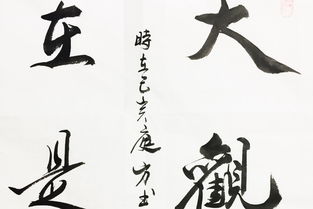 大觀
時在己亥庭书
在是